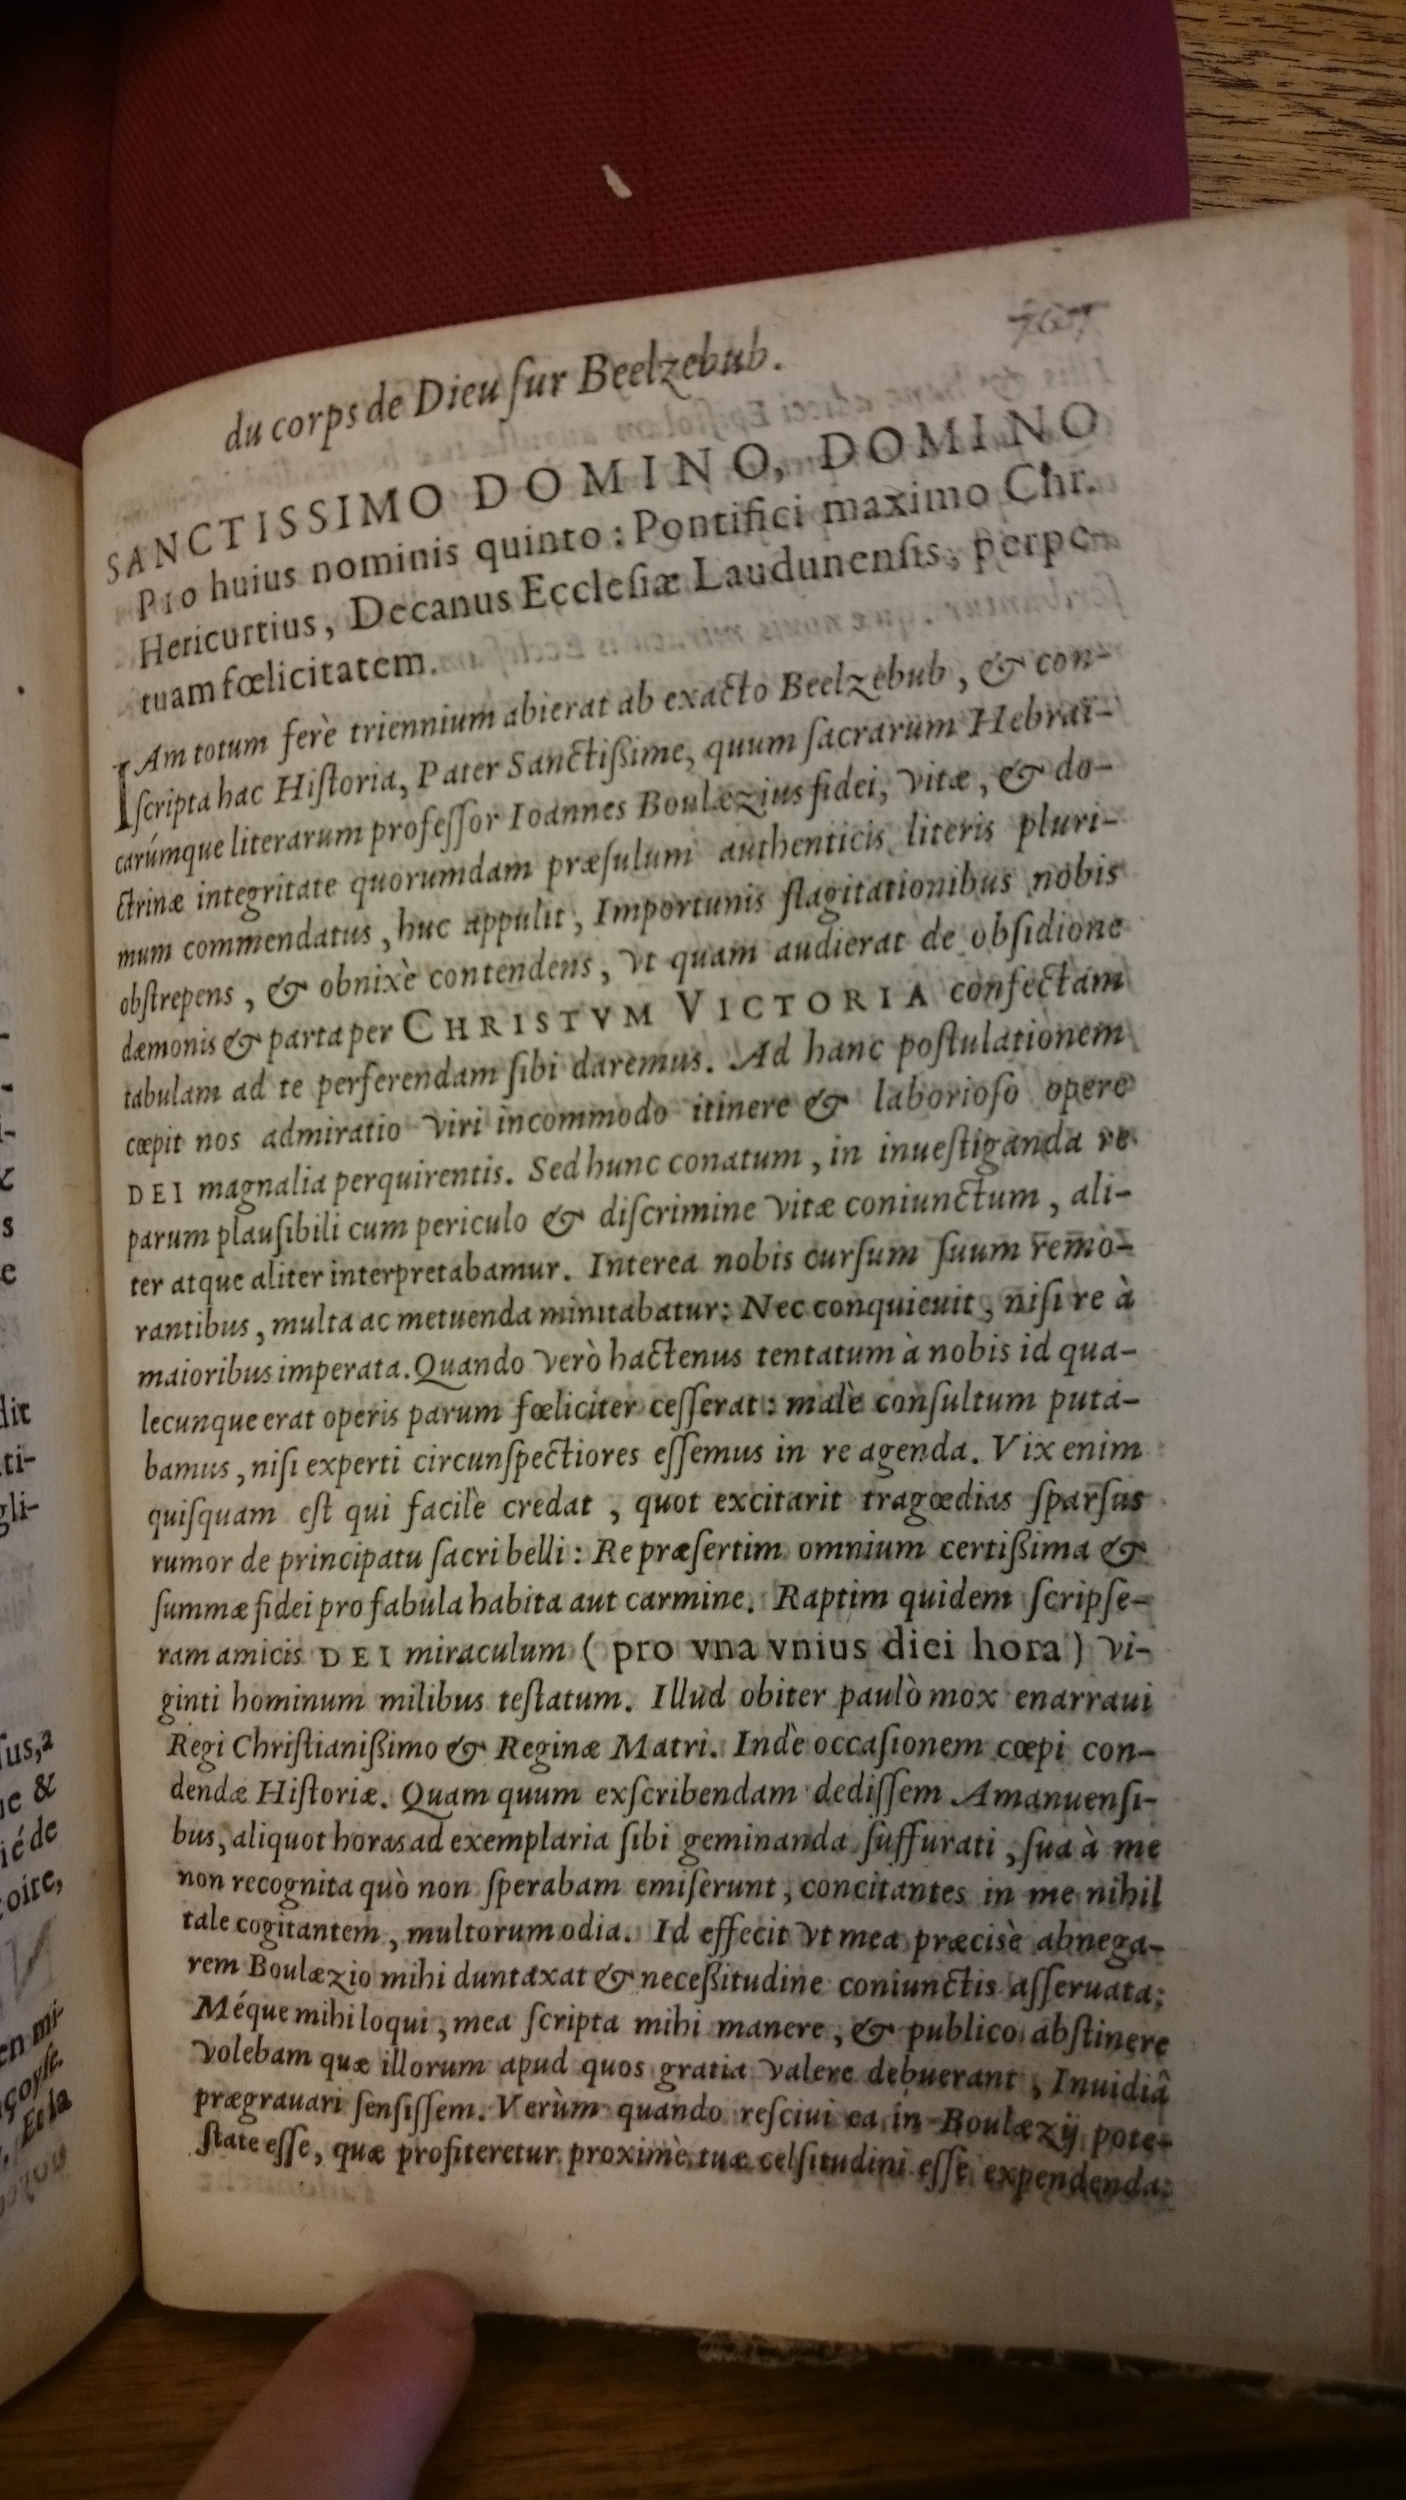 du corps de Dieu ſur Beelzebub.
SANCTISSIMO DOMINO, DOMINO
Pio huius nominis quinto : Pontifici maximo Chr.
Hericurtius, Decanus Eccleſiæ Laudunenſis, perpe-
tuam fœlicitatem.
IAm totum ferè triennium abierat ab exacto Beelzebub, & con-
ſcripta hac Hiſtoria, Pater Sanctißime, quum ſacrarum Hebraï-
carúmque literarum profeſſor Ioannes Boulæzius fidei, vitæ, & do-
ctrinæ integritate quorumdam præſulum authenticis literis pluri-
mum commendatus, huc appulit, Importunis flagitationibus nobis
obſtrepens, & obnixè contendens, vt quam audierat de obſidione
dæmonis & parta per CHRISTVM VICTORIA confectam
tabulam ad te perferendam ſibi daremus. Ad hanc poſtulationem
cœpit nos admiratio viri incommodo itinere & laborioſo opere
DEI magnalia perquirentis. Sed hunc conatum, in inueſtiganda re
parum plauſibili cum periculo & diſcrimine vitæ coniunctum, ali-
ter atque aliter interpretabamur. Interea nobis curſum ſuum remo-
rantibus, multa ac metuenda minitabatur: Nec conquieuit, niſi re à
maioribus imperata. Quando verò hactenus tentatum à nobis id qua-
lecunque erat operis parum fœliciter ceſſerat : malè conſultum puta-
bamus, niſi experti circunſpectiores eſſemus in re agenda. Vix enim
quiſquam eſt qui facilè credat, quot excitarit tragœdias ſparſus
rumor de principatu ſacri belli : Re præſertim omnium certißima &
ſummæ fidei pro fabula habita aut carmine. Raptim quidem ſcripſe-
ram amicis DEI miraculum ( pro vna vnius diei hora ) vi-
ginti hominum milibus teſtatum. Illud obiter paulò mox enarraui
Regi Chriſtianißimo & Reginæ Matri. Indè occaſionem cœpi con-
dendæ Hiſtoriæ. Quam quum exſcribendam dediſſem Amanuenſi-
bus, aliquot horas ad exemplaria ſibi geminanda ſuffurati, ſua à me
non recognita quò non ſperabam emiſerunt, concitantes in me nihil
tale cogitantem, multorum odia. Id effecit vt mea præcisè abnega-
rem Boulæzio mihi duntaxat & neceßitudine coniunctis aſſeruata;
Méque mihi loqui, mea ſcripta mihi manere, & publico abſtinere
volebam quæ illorum apud quos gratia valere debuerant, Inuidiâ
prægrauari ſenſiſſem. Verùm quando reſciui ea in Boulæzij pote-
ſtate eſſe, quæ profiteretur proximè tuæ celſitudini eſſe expendenda: